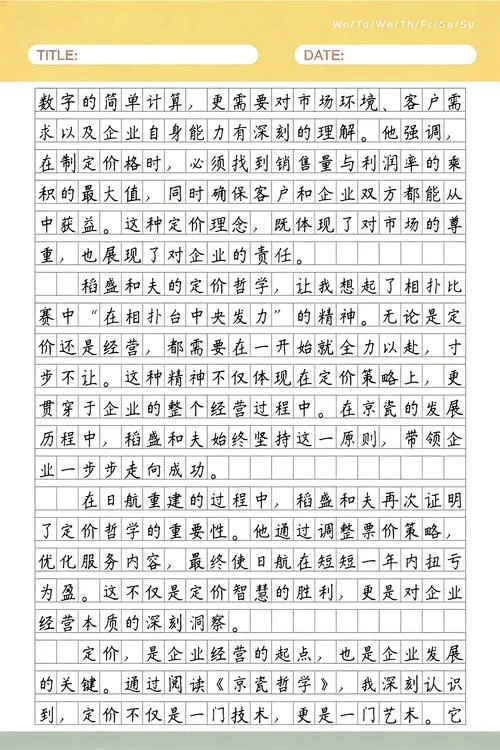 We/Tu/We/Th/Fr/Sa/Su
TITLE: DATE:
数字的简单计算，更需要对市场环境、客户需
求以及企业自身能力有深刻的理解。他强调，
在制定价格时，必须找到销售量与利润率的乘
积的最大值，同时确保客户和企业双方都能从
中获益。这种定价理念，既体现了对市场的尊
重，也展现了对企业的责任。
稻盛和夫的定价哲学，让我想起了相扑比
赛中“在相扑台中央发力”的精神。无论是定
价还是经营，都需要在一开始就全力以赴，寸
步不让。这种精神不仅体现在定价策略上，更
贯穿于企业的整个经营过程中。在京瓷的发展
历程中，稻盛和夫始终坚持这一原则，带领企
业一步步走向成功。
在日航重建的过程中，稻盛和夫再次证明
了定价哲学的重要性。他通过调整票价策略，
优化服务内容，最终使日航在短短一年内扭亏
为盈。这不仅是定价智慧的胜利，更是对企业
经营本质的深刻洞察。
定价，是企业经营的起点，也是企业发展
的关键。通过阅读《京瓷哲学》，我深刻认识
到，定价不仅是一门技术，更是一门艺术。它